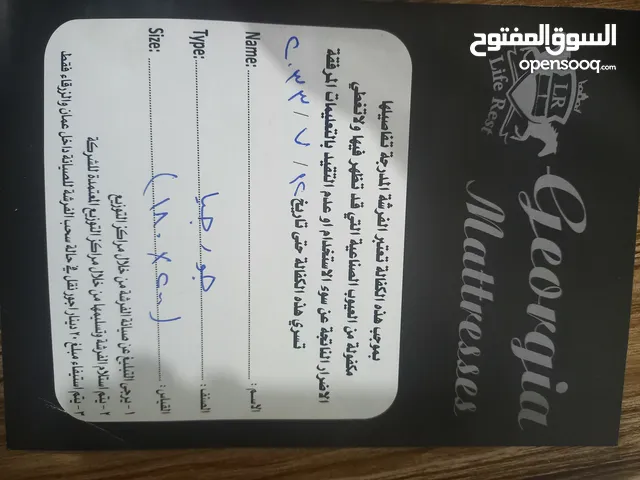 السوق المفتوح
opensooq.com
LR
Life Rest
Georgia
Mattresses
بموجب هذه الكفالة تعتبر الفرشة المدرجة تفاصيلها
مكفولة من العيوب الصناعية التي قد تظهر فيها ولاتغطي
الاضرار الناتجة عن سوء الاستخدام او عدم التقيد بالتعليمات المرفقة
تسري هذه الكفالة حتى تاريخ ٤ / ٧ / ٢٠٣٣
Name: الاسم :
Type: جورجيا الصنف :
Size: (١٨٠x٢٠٠) القياس :
١ - يرجى التبليغ عن صيانة الفرشة من خلال مراكز التوزيع
٢ - يتم استلام الفرشة وتسليمها من خلال مراكز التوزيع المعتمدة للشركة
٣ - يتم استيفاء مبلغ ٢٠ دينار اجور نقل في حالة سحب الفرشة للصيانة داخل عمان والزرقاء فقط